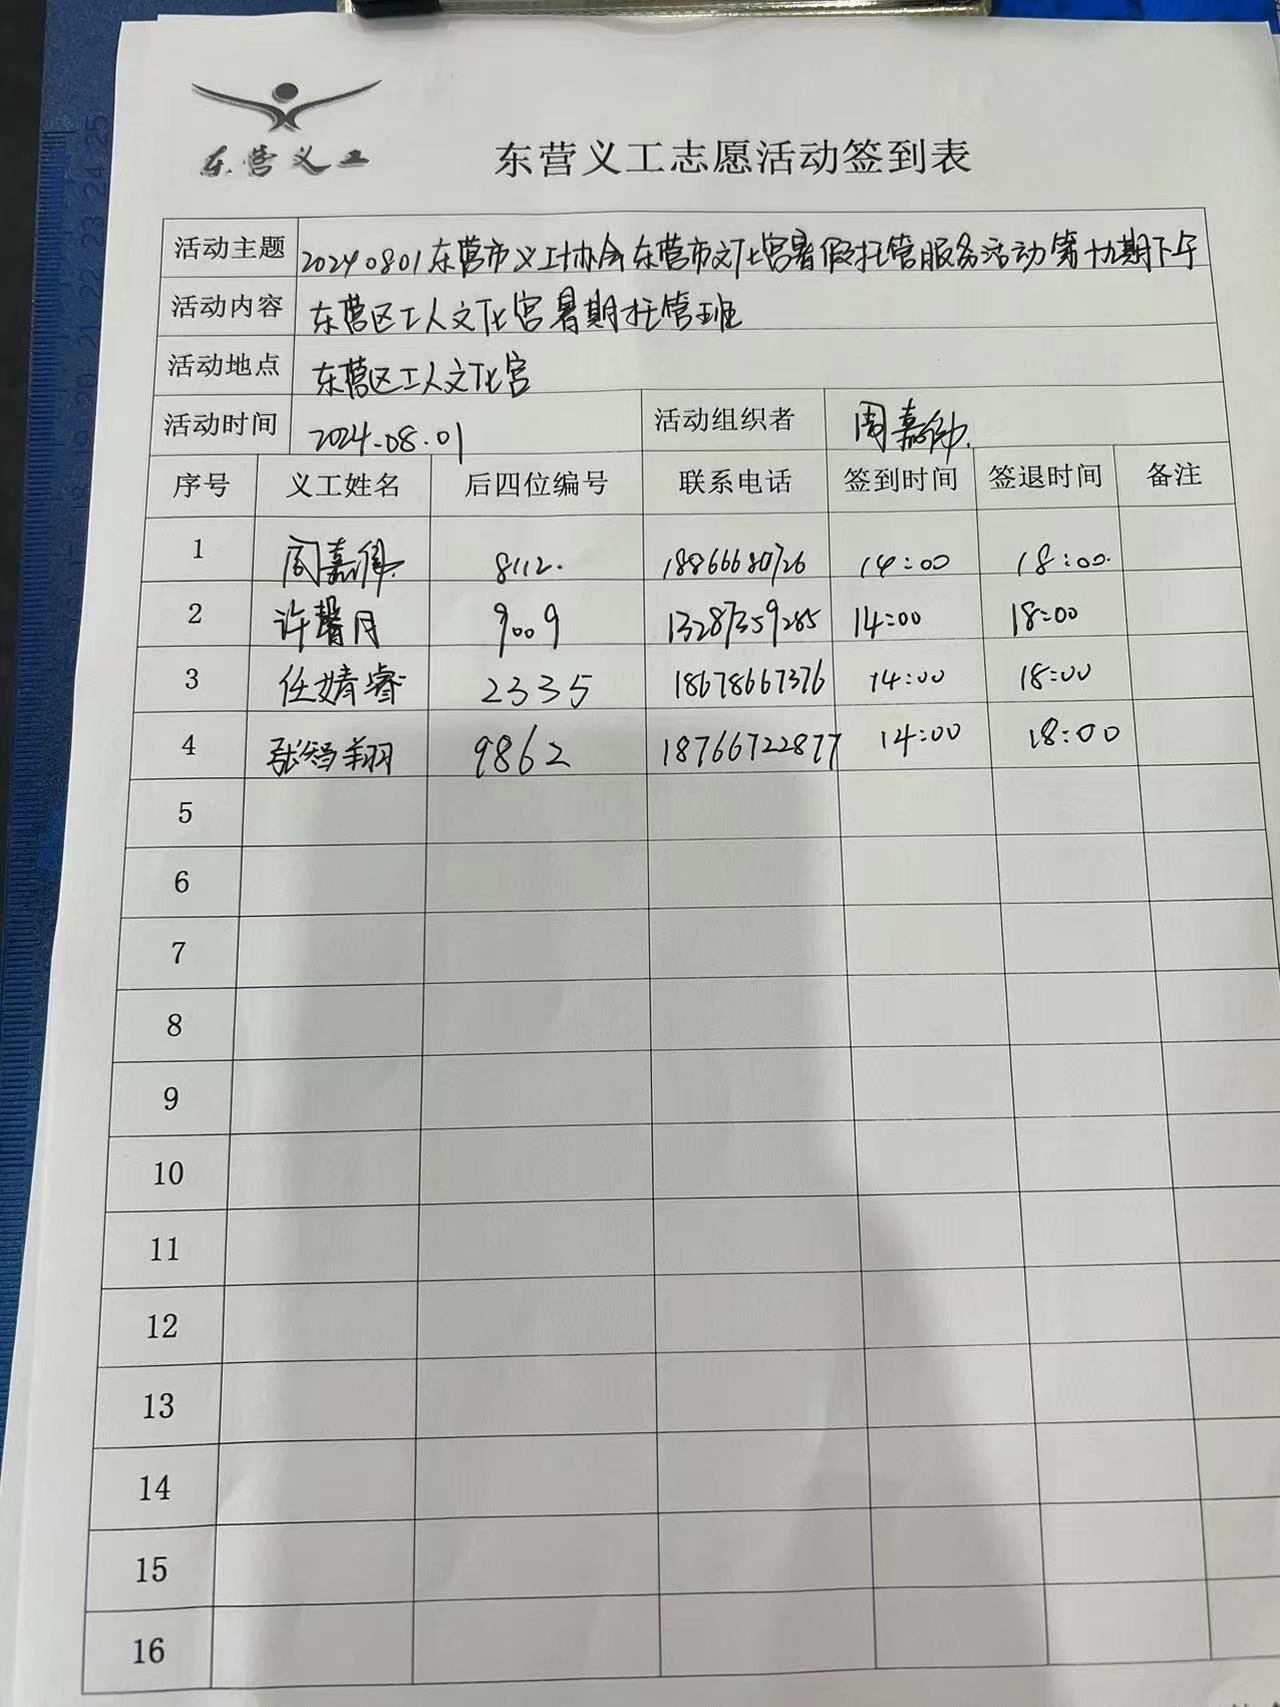 东营义工
东营义工志愿活动签到表
活动主题 20240801东营市义工协会东营市文化宫暑假托管服务活动第十九期下午
活动内容 东营区工人文化宫暑期托管班
活动地点 东营区工人文化宫
活动时间 2024.08.01 活动组织者 周嘉伟
序号 义工姓名 后四位编号 联系电话 签到时间 签退时间 备注
1 周嘉伟 8112. 18866680726 14:00 18:00.
2 许馨月 9009 13287359285 14:00 18:00
3 任婧睿 2335 18678667376 14:00 18:00
4 张智翔 9862 18766722877 14:00 18:00
5
6
7
8
9
10
11
12
13
14
15
16